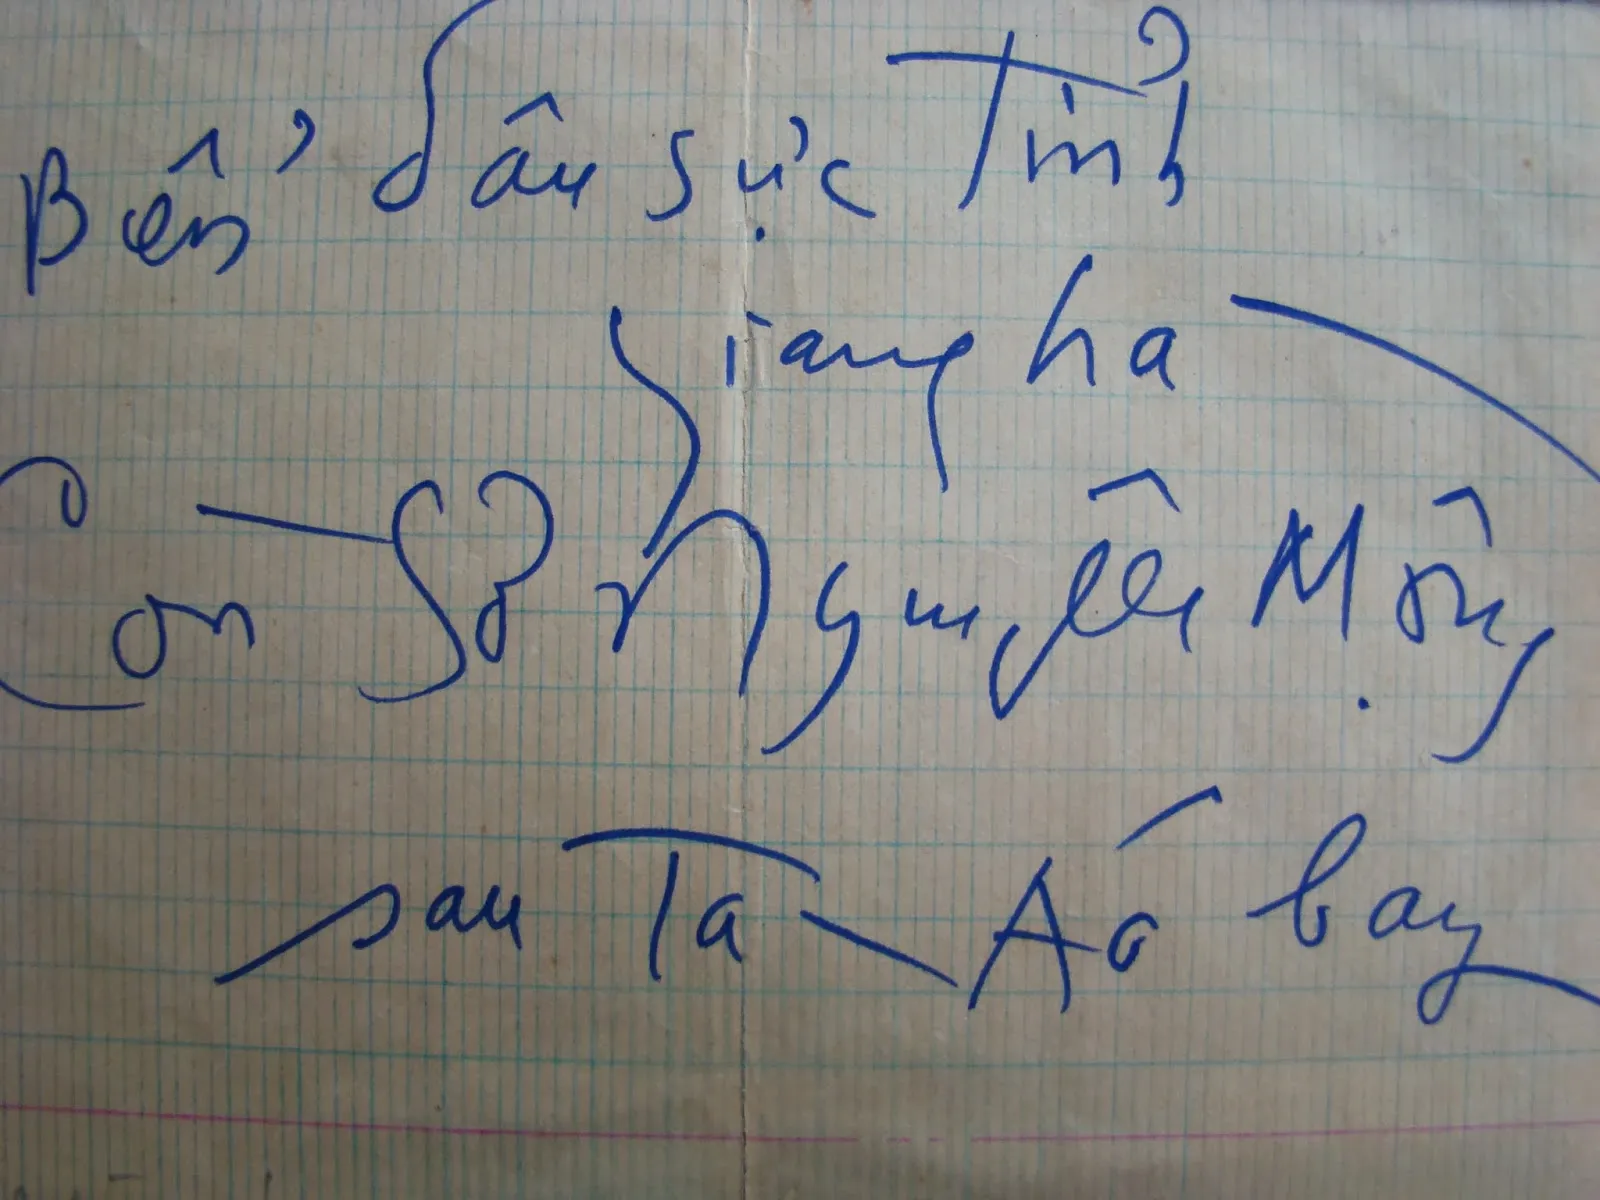 Biển dâu sực Tỉnh
Giang hà
Còn Sơ Nguyên Mộng
sau Tà Áo bay